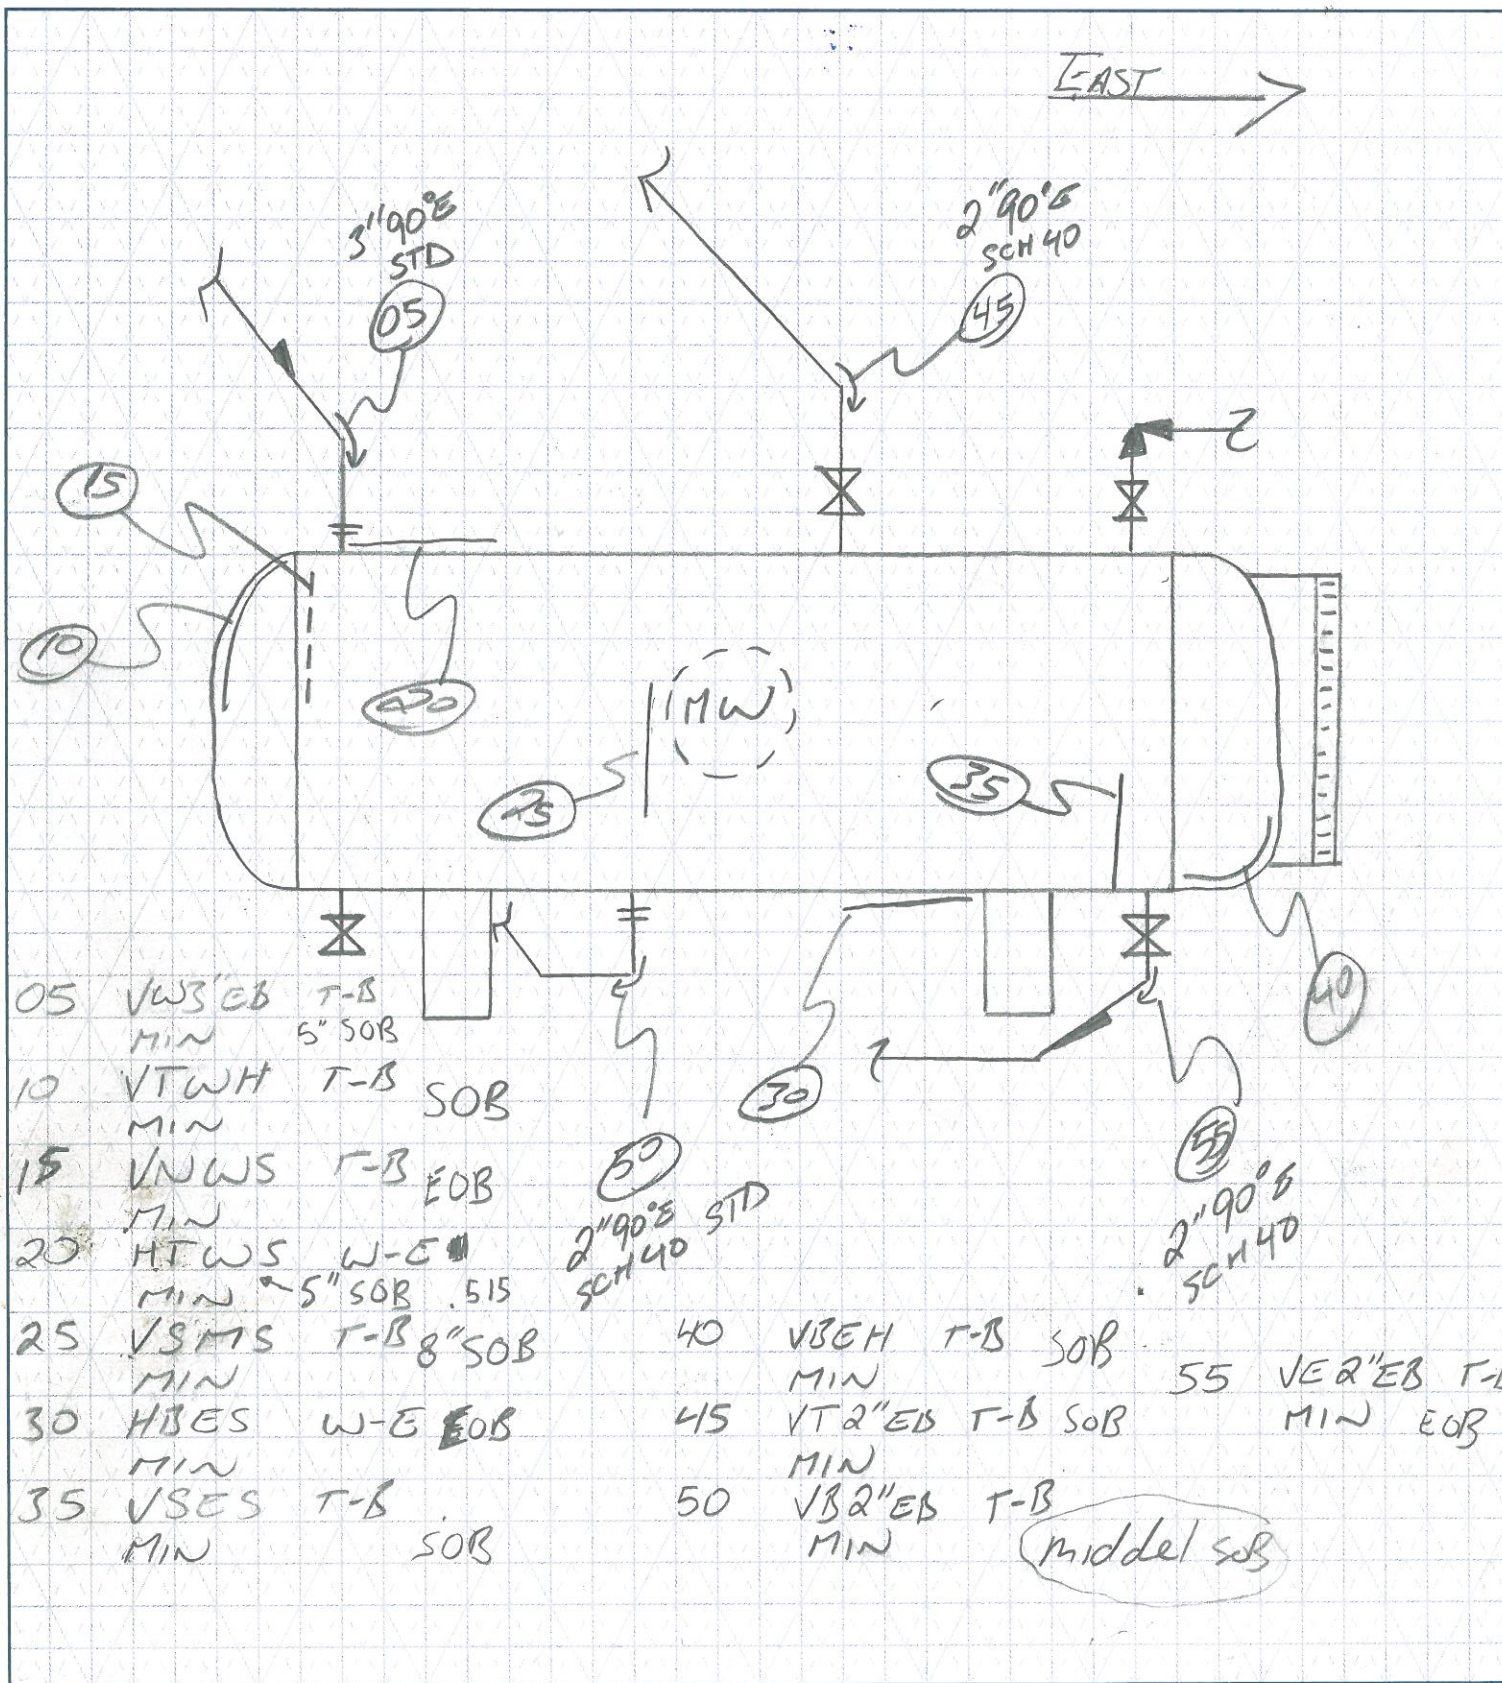 EAST
3"90°E
STD
05
2"90°E
SCH 40
45
15
10
20
MW
25
35
40
30
50
2"90°E STD
SCH 40
55
2"90°E
SCH 40
05 VW3"EB T-B
MIN 5" SOB
10 VTWH T-B SOB
MIN
15 VNWS T-B EOB
MIN
20 HTWS W-E
MIN 5" SOB .515
25 VSMS T-B 8" SOB
MIN
30 HBES W-E EOB
MIN
35 VSES T-B
MIN SOB
40 VBEH T-B SOB
MIN
45 VT2"EB T-B SOB
MIN
50 VB2"EB T-B
MIN middel SOB
55 VE2"EB T-B
MIN EOB